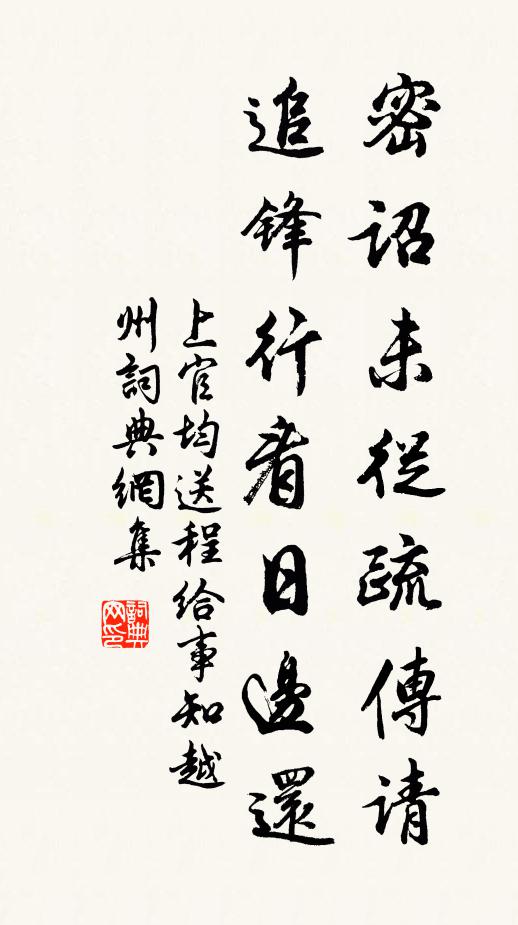 密詔未從疏傳请
追鋒行看日邊還
上官均送程给事知越
州詞典網集
詞典网印